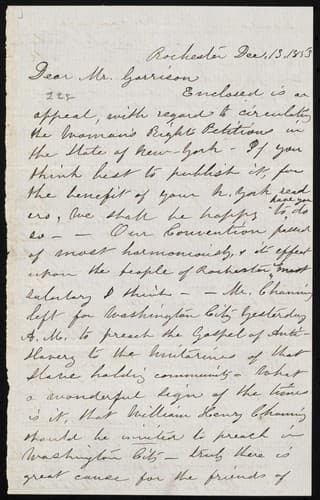 Rochester Dec. 13. 1853
Dear Mr. Garrison
Enclosed is an
appeal, with regard to circulating
the Woman's Rights Petitions in
the State of New-York - If you
think best to publish it, for
the benefit of your N. York read
ers, we shall be happy to have you do
so - - Our Convention passed
off most harmoniously, & its effect
upon the people of Rochester most
salutary I think - - Mr. Channing
left for Washington City Yesterday
A.M. to preach the Gospel of Anti-
Slavery to the Unitarians of that
slave holding community - What
a wonderful sign of the times
is it, that William Henry Channing
should be invited to preach in
Washington City - truly there is
great cause for the friends of